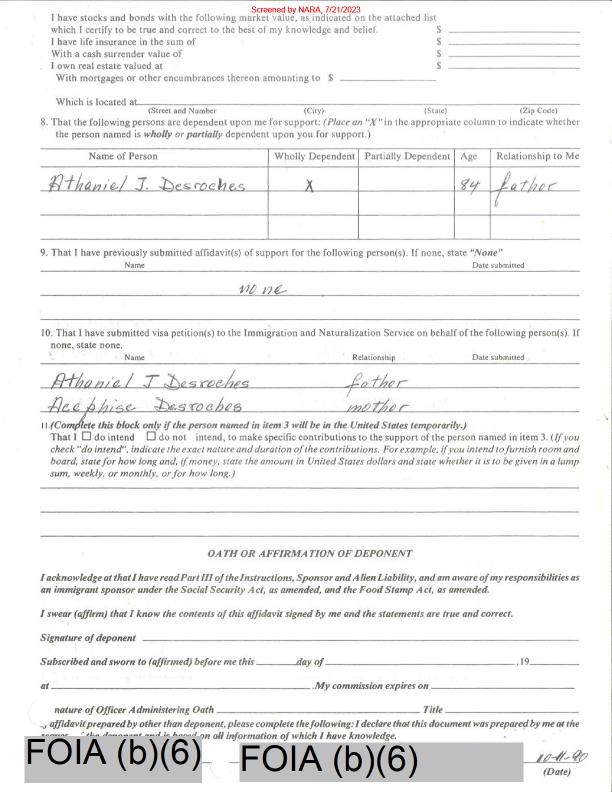 Screened by NARA, 7/21/2023
I have stocks and bonds with the following market value, as indicated on the attached list
which I certify to be true and correct to the best of my knowledge and belief. $
I have life insurance in the sum of $
With a cash surrender value of $
I own real estate valued at $
With mortgages or other encumbrances thereon amounting to $
Which is located at
(Street and Number) (City) (State) (Zip Code)
8. That the following persons are dependent upon me for support: (Place an "X" in the appropriate column to indicate whether
the person named is wholly or partially dependent upon you for support.)
Name of Person Wholly Dependent Partially Dependent Age Relationship to Me
Athaniel J. Desroches X 84 father
9. That I have previously submitted affidavit(s) of support for the following person(s). If none, state "None"
Name Date submitted
none
10. That I have submitted visa petition(s) to the Immigration and Naturalization Service on behalf of the following person(s). If
none, state none.
Name Relationship Date submitted
Athaniel J Desroches father
Acephise Desroches mother
11.(Complete this block only if the person named in item 3 will be in the United States temporarily.)
That I ☐ do intend ☐ do not intend, to make specific contributions to the support of the person named in item 3. (If you
check "do intend", indicate the exact nature and duration of the contributions. For example, if you intend to furnish room and
board, state for how long and, if money, state the amount in United States dollars and state whether it is to be given in a lump
sum, weekly, or monthly, or for how long.)
OATH OR AFFIRMATION OF DEPONENT
I acknowledge at that I have read Part III of the Instructions, Sponsor and Alien Liability, and am aware of my responsibilities as
an immigrant sponsor under the Social Security Act, as amended, and the Food Stamp Act, as amended.
I swear (affirm) that I know the contents of this affidavit signed by me and the statements are true and correct.
Signature of deponent
Subscribed and sworn to (affirmed) before me this day of ,19
at .My commission expires on
nature of Officer Administering Oath Title
affidavit prepared by other than deponent, please complete the following: I declare that this document was prepared by me at the
the deponent and is based on all information of which I have knowledge.
FOIA (b)(6) FOIA (b)(6) 10-11-90
(Date)